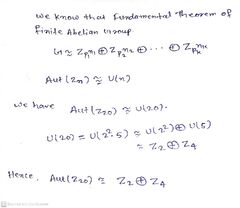 we know that Fundamental Theorem of
Finite Abelian Group
G ≈ Z_{p_1^{n_1}} ⊕ Z_{p_2^{n_2}} ⊕ ... ⊕ Z_{p_k^{n_k}}
Aut(Z_n) ≈ U(n)
we have Aut(Z_{20}) ≈ U(20).
U(20) = U(2^2·5) ≈ U(2^2) ⊕ U(5)
≈ Z_2 ⊕ Z_4
Hence, Aut(Z_{20}) ≈ Z_2 ⊕ Z_4